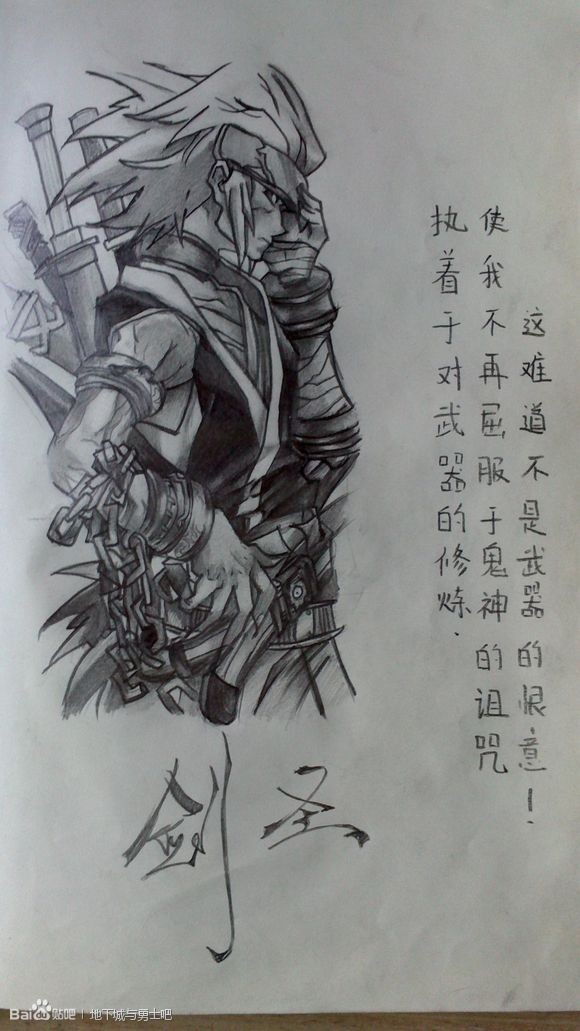 执着于对武器的修炼.
使我不再屈服于鬼神的诅咒
这难道不是武器的恨意！
剑圣
Bai du 贴吧 | 地下城与勇士吧